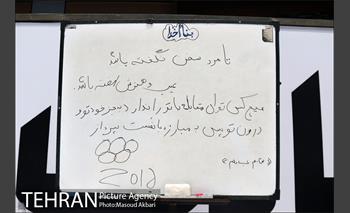 بنام خدا
تا مرد سخن نگفته باشد
عیب و هنرش نهفته باشد
هیچ کس توان مقابله با تو را ندارد بجز خودت و
درون توپس به مبارزه بانفست بپرداز
2016
TEHRAN Picture Agency
Photo:Masoud Akbari